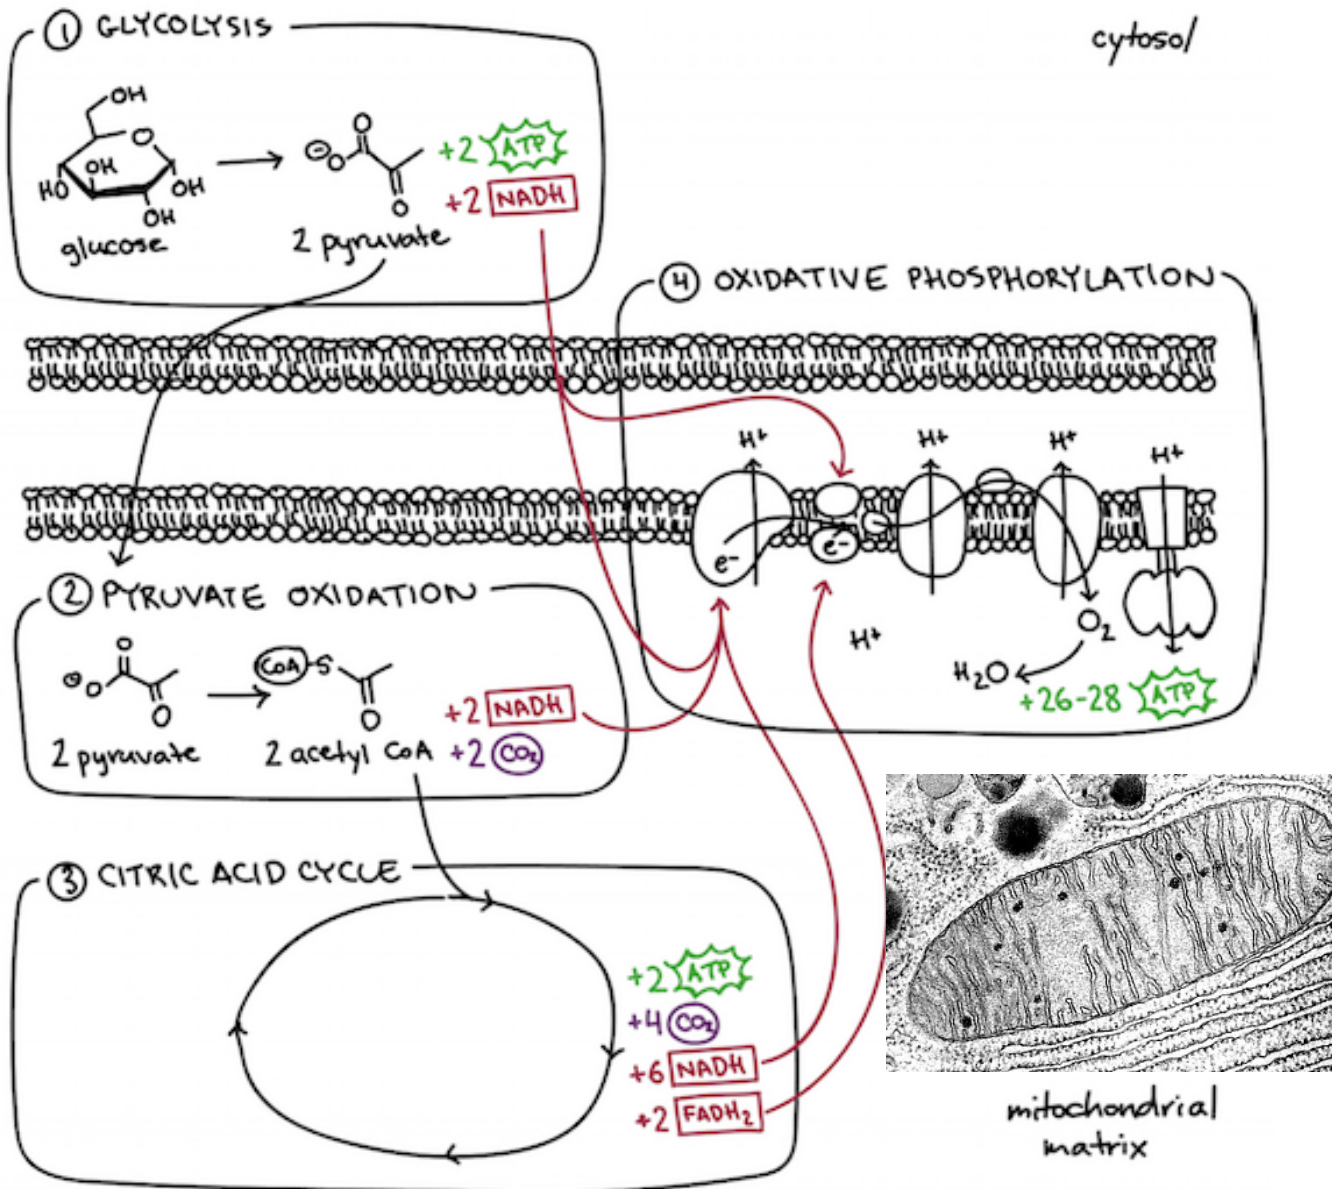 ① GLYCOLYSIS
cytosol
OH
O
OH
HO
OH
OH
glucose
⊖O
O
O
2 pyruvate
+2 ATP
+2 NADH
④ OXIDATIVE PHOSPHORYLATION
H+
H+
H+
H+
e-
e-
H+
O₂
H₂O
+26-28 ATP
② PYRUVATE OXIDATION
⊖O
O
O
2 pyruvate
CoA-S
O
2 acetyl CoA
+2 NADH
+2 CO₂
③ CITRIC ACID CYCLE
+2 ATP
+4 CO₂
+6 NADH
+2 FADH₂
mitochondrial
matrix